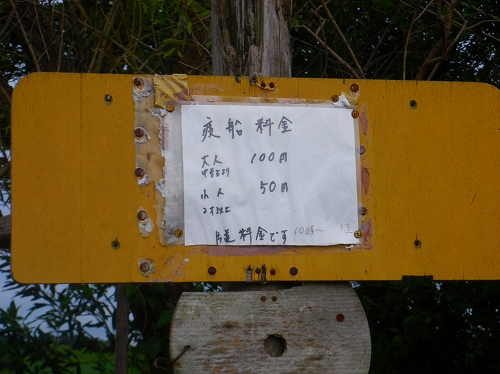 渡船料金
大人 100円
中学生より
小人 50円
2才以上
片道料金です 10時〜